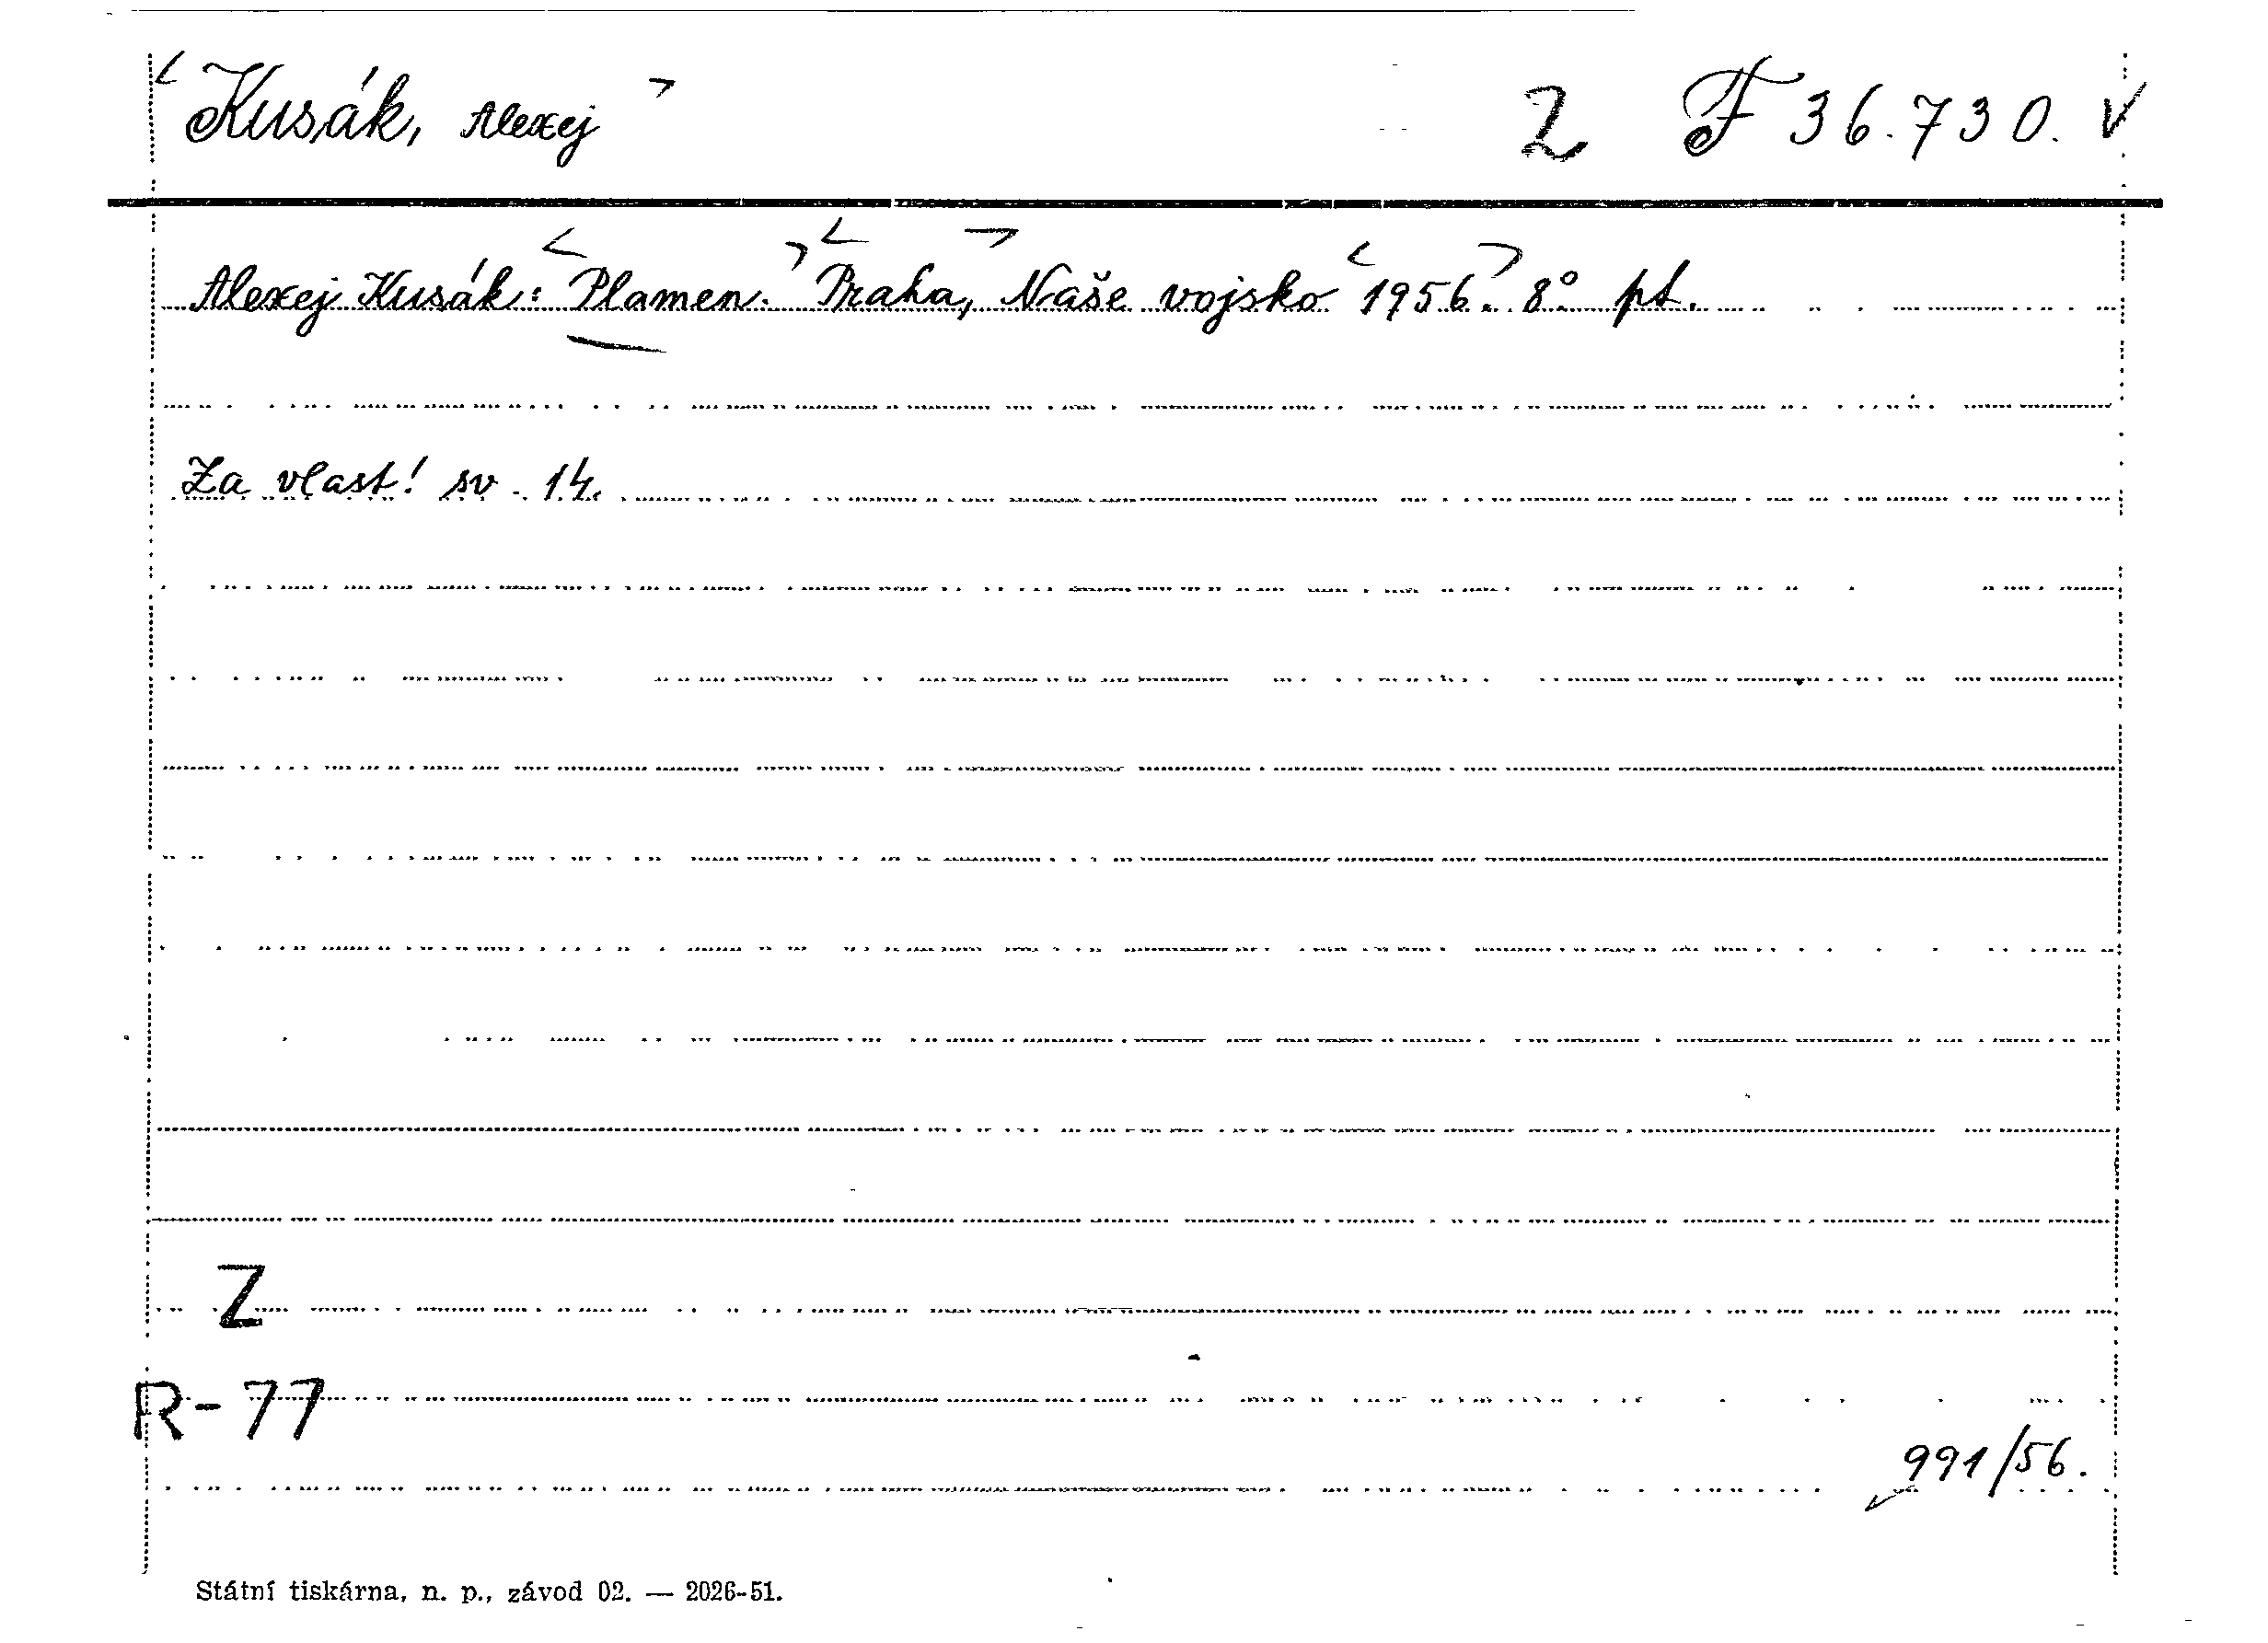 Kusák, Alexej 2 F 36.730. V
Alexej Kusák: Plamen. Praha, Naše vojsko 1956. 8° pt.
Za vlast! sv. 14.
Z
R-77
991/56.
Státní tiskárna, n. p., závod 02. — 2026-51.